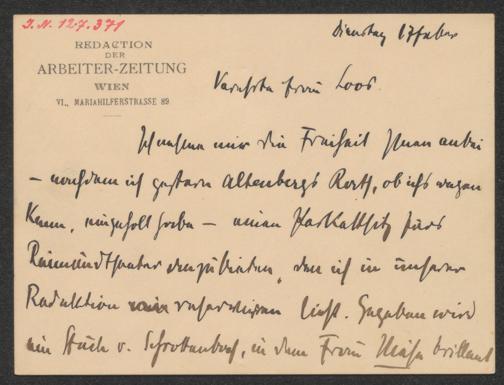 I.N. 127.371
REDACTION
DER
ARBEITER-ZEITUNG
WIEN
VI., MARIAHILFERSTRASSE 89
Dienstag 17 Feber
Verehrte Frau Loos.
Ich nehme mir die Freiheit Ihnen anbei
– nachdem ich gestern Altenbergs Rath, ob ichs wagen
kann, eingeholt habe – einen Parkettsitz fürs
Raimundtheater anzubieten, den ich in unserer
Redaktion reserviren ließ. Gegeben wird
ein Stück v. Schrottenbach, in dem Frau Niese brillant